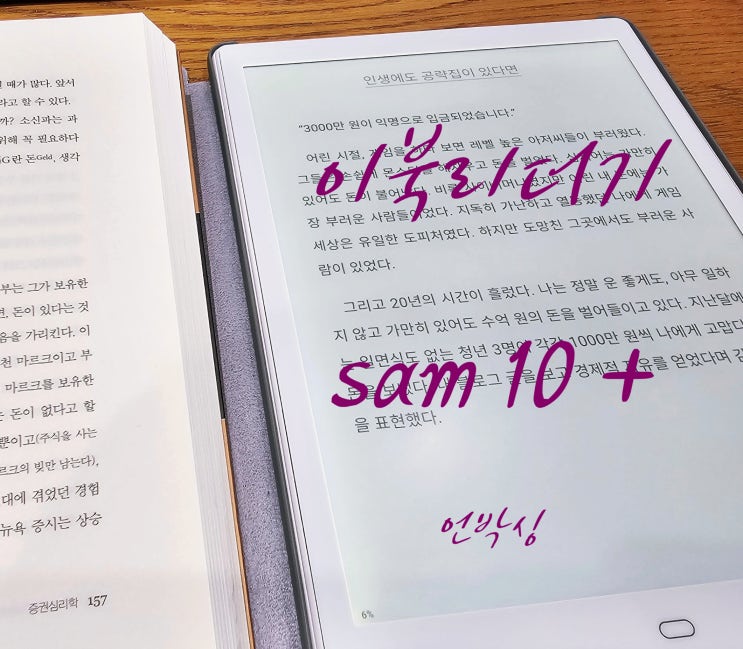 때가 많다. 앞서
라고 할 수 있다.
까? 소신과는 과
위해 꼭 필요하다
G란 돈Geld, 생각
부는 그가 보유한
면, 돈이 있다는 것
음을 가리킨다. 이
천 마르크이고 부
마르크를 보유한
돈이 없다고 할
뿐이고(주식을 사는
르크의 빚만 남는다),
대에 겪었던 경험
뉴욕 증시는 상승
증권심리학 157
인생에도 공략집이 있다면
"3000만 원이 익명으로 입금되었습니다."
어린 시절, 게임을 하다 보면 레벨 높은 아저씨들이 부러웠다.
그들은 손쉽게 돈을
있어도 돈이
장 부러운 사람들이었다. 지독히 가난하고 열등했던 나에게 게임
세상은 유일한 도피처였다. 하지만 도망친 그곳에서도 부러운 사
람이 있었다.
그리고 20년의 시간이 흘렀다. 나는 정말 운 좋게도, 아무 일하
지 않고 가만히 있어도 수억 원의 돈을 벌어들이고 있다. 지난달에
는 일면식도 없는 청년 3명에 각각 1000만 원씩 나에게 고맙다
블로그 글을 보고 경제적 자유를 얻었다며 감
을 표현했다.
6%
이북리더기
sam 10 +
언박싱